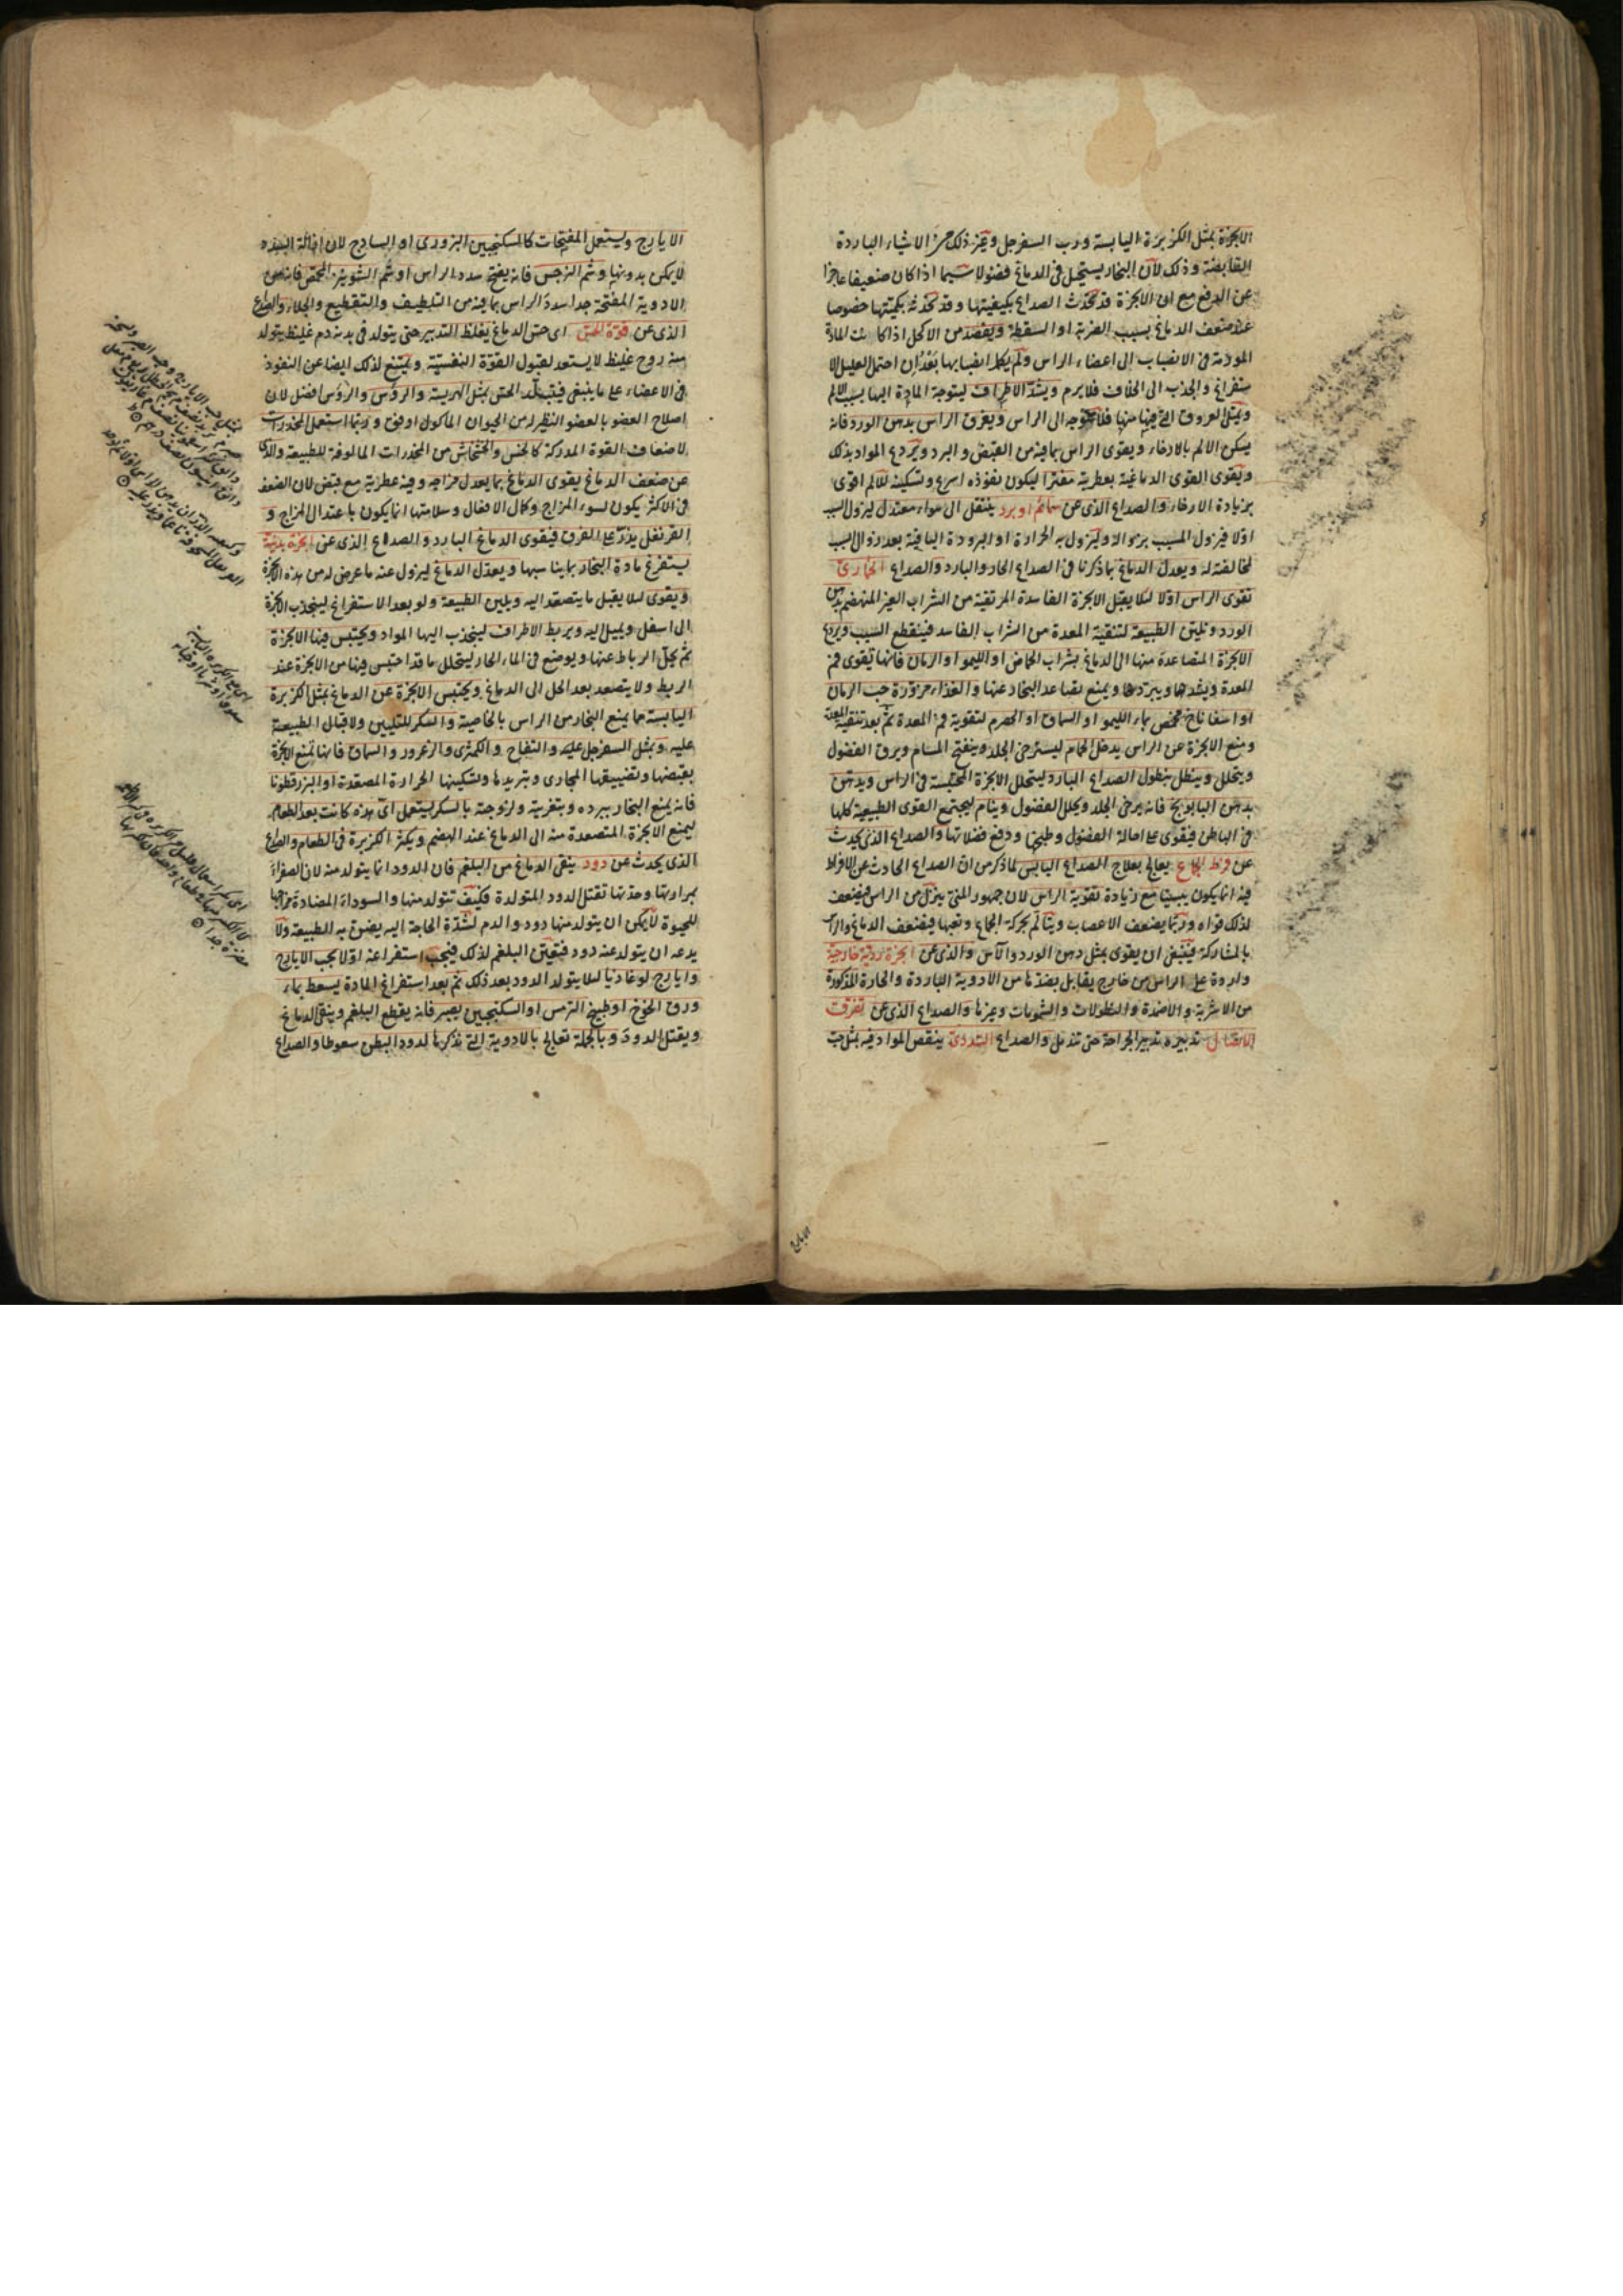 الابخرة بمثل الكزبرة اليابسة ورب السفرجل وغير ذلك من الاشياء الباردة
القابضة وذلك لان البخار يستحيل في الدماغ فضولا سيما اذا كان ضعيفا عاجزا
عن الدفع مع ان الابخرة قد تحدث الصداع بكيفيتها وقد تحدثه بكميتها خصوصا
عند ضعف الدماغ بسبب الضربة او السقطة ويفصد من الاكحل اذا كانت المادة
المورمة في الانصباب الى اعضاء الراس ولم يكمل انصبابها بعد ان احتمل العليل الا
ستفراغ والجذب الى الخلاف فلا يرم ويشد الاطراف ليتوجه المادة اليها بسبب الالم
ويمتلئ العروق التي فيها منها فلا يتوجه الى الراس ويغرق الراس بدهن الورد فانه
يسكن الالم بالارخاء ويقوى الراس بما فيه من القبض والبرد ويردع المواد بذلك
ويقوى القوى الدماغية بعطريته مفترا ليكون نفوذه اسرع وتسكينه للالم اقوى
بزيادة الارخاء والصداع الذى عن سمائم او برد ينتقل الى هواء معتدل ليزول السبب
اولا فيزول المسبب بزواله وليزول به الحرارة او البرودة الباقية بعد زوال السبب
لمخالفته له ويعدل الدماغ بما ذكرنا في الصداع الحار والبارد والصداع الخمارى
تقوى الراس اولا لئلا يقبل الابخرة الفاسدة المرتقية من الشراب الغير المنهضم بدهن
الورد وتليين الطبيعة لتنقية المعدة من الشراب الفاسد فينقطع السبب ويردع
الابخرة المتصاعدة منها الى الدماغ بشراب الحماض او الليمو او الرمان فانها تقوى فم
المعدة ويشدها ويبردها ويمنع تصاعد البخار عنها والغذاء مزورة حب الرمان
او اسفاناخ محمض بماء الليمو او السماق او الحصرم لتقوية فم المعدة ثم بعد تنقية المعدة
ومنع الابخرة عن الراس يدخل الحمام ليسترخى الجلد وينفتح المسام ويرق الفضول
ويتحلل وينطل بنطول الصداع البارد ليتحلل الابخرة المحتبسة في الراس ويدهن
بدهن البابونج فانه يرخى الجلد ويحلل الفضول وينام ليجتمع القوى الطبيعية كلها
في الباطن فيقوى على احالة الفضول وطبخها ودفع فضلاتها والصداع الذى يحدث
عن فرط الجماع يعالج بعلاج الصداع اليابس لما ذكر من ان الصداع الحادث عن الافراط
فيه انما يكون يبسيا مع زيادة تقوية الراس لان جمهور المنى ينزل من الراس فيضعف
لذلك قواه وربما يضعف الاعصاب ويتالم بحركة الجماع وتعبها فيضعف الدماغ والراس
بالمشاركة فينبغى ان يقوى بمثل دهن الورد والآس والذى عن ابخرة ردية خارجية
واردة على الراس من خارج يقابل بضدها من الادوية الباردة والحارة المذكورة
من الاشربة والاضمدة والنطولات والشمومات وغيرها والصداع الذى عن تفرق
الاتصال تدبيره تدبير الجراحة حتى تندمل والصداع السددى ينقص المواد فيه بمثل حب
الايارج
الايارج ويستعمل المفتحات كالسكنجبين البزورى او الساذج لان ازالة السدة
لا يمكن بدونها وشم النرجس فانه يفتح سدد الراس او شم الشونيز المحمص فانه من
الادوية المفتحة جدا سدد الراس بما فيه من التلطيف والتقطيع والجلاء والصداع
الذى عن قوة الحس اى حس الدماغ يغلظ التدبير حتى يتولد في بدنه دم غليظ يتولد
منه روح غليظ لا يستعد لقبول القوة النفسية ويمتنع لذلك ايضا عن النفوذ
في الاعضاء على ما ينبغى فيتبلد الحس بمثل الهريسة والرؤس والرؤس افضل لان
اصلاح العضو بالعضو النظير له من الحيوان الماكول اوفق وربما استعمل المخدرات
لاضعاف القوة المدركة كالخس والخشخاش من المخدرات المالوفة للطبيعة والذى
عن ضعف الدماغ يقوى الدماغ بما يعدل مزاجه وفيه عطرية مع قبض لان الضعف
في الاكثر يكون لسوء المزاج وكمال الافعال وسلامتها انما يكون باعتدال المزاج و
القرنفل يذر على الفرق فيقوى الدماغ البارد والصداع الذى عن ابخرة بدنية
يستفرغ مادة البخار بما يناسبها ويعدل الدماغ ليزول عنه ما عرض له من هذه الابخرة
ويقوى لئلا يقبل ما يتصعد اليه ويلين الطبيعة ولو بعد الاستفراغ لينجذب الابخرة
الى اسفل ويميل اليه ويربط الاطراف لينجذب اليها المواد ويحتبس فيها الابخرة
ثم يحل الرباط عنها ويوضع في الماء الحار ليتحلل ما قد احتبس فيها من الابخرة عند
الربط ولا يتصعد بعد الحل الى الدماغ ويحتبس الابخرة عن الدماغ بمثل الكزبرة
اليابسة مما يمنع البخار من الراس بالخاصية والسكر للتليين ولاقبال الطبيعة
عليه وبمثل السفرجل عليه والتفاح والكمثرى والزعرور والسماق فانها تمنع الابخرة
بقبضها وتضييقها المجارى وتبريدها وتسكينها الحرارة المصعدة او البزرقطونا
فانه يمنع البخار ببرده وبتغريته ولزوجته بالسكر ليستعمل اى هذه كانت بعد الطعام
ليمنع الابخرة المتصعدة منه الى الدماغ عند الهضم ويكثر الكزبرة في الطعام والصداع
الذى يحدث عن دود ينقى الدماغ من البلغم فان الدود انما يتولد منه لان الصفراء
بمرارتها وحدتها تقتل الدود المتولدة فكيف تتولد منها والسوداء المضادة مزاجها
للحيوة لا يمكن ان يتولد منها دود والدم لشدة الحاجة اليه يضن به الطبيعة ولا
يدعه ان يتولد عنه دود فبقيتن البلغم لذلك فيجب استفراغه اولا بحب الايارج
وايارج لوغاذيا لئلا يتولد الدود بعد ذلك ثم بعد استفراغ المادة يسعط بماء
ورق الخوخ او طبيخ الترمس او السكنجبين بصبر فانه يقطع البلغم وينقى الدماغ
ويقتل الدود وبالجملة تعالج بالادوية التى نذكرها لدود البطن سعوطا والصداع